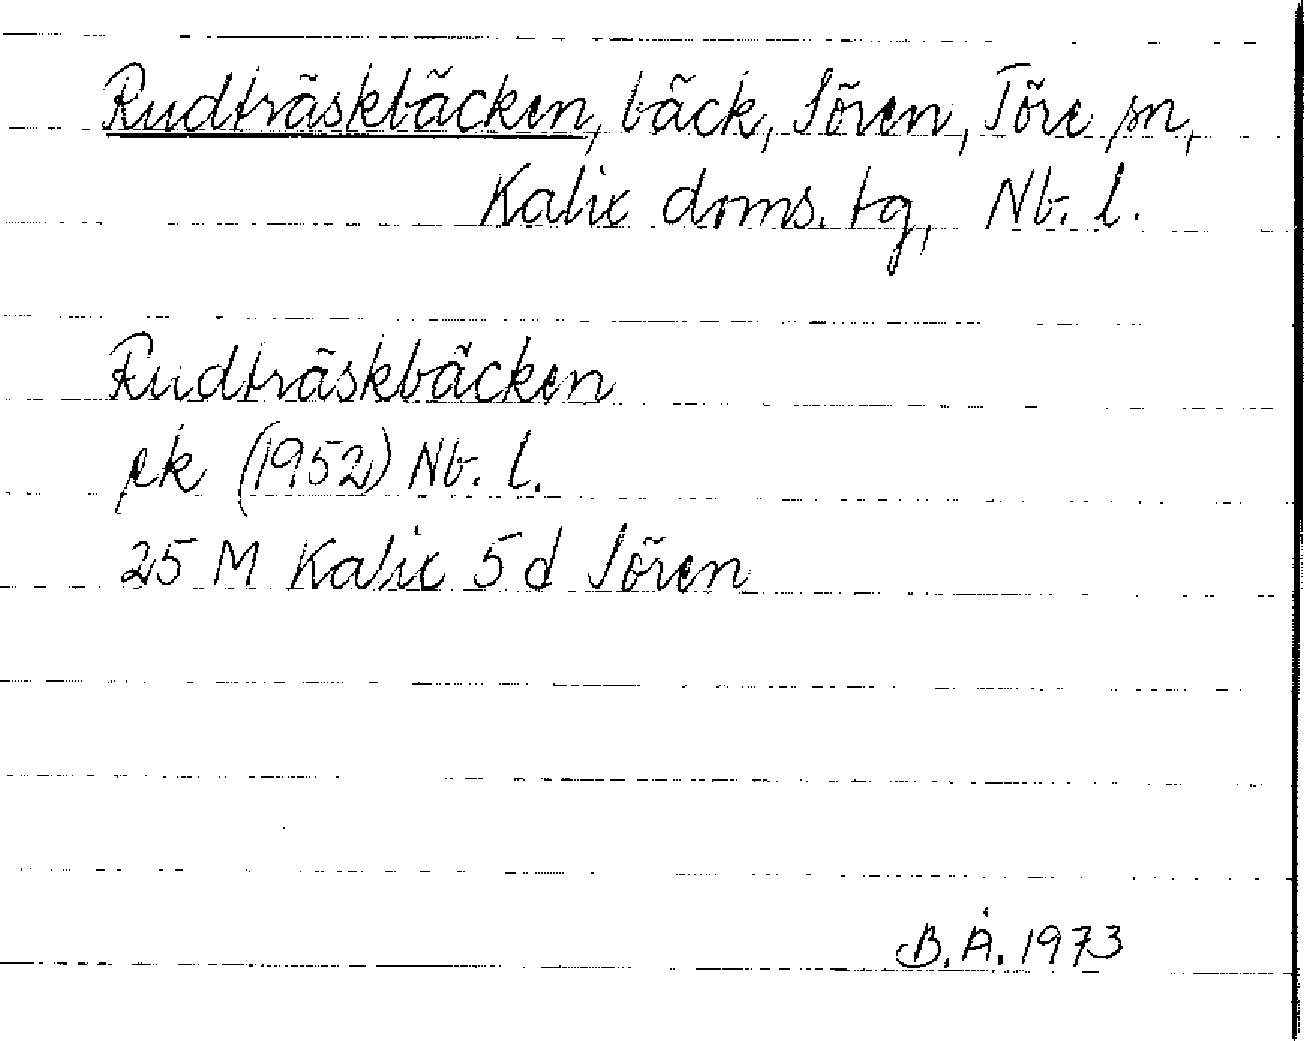 Rudträskbäcken, bäck, Sören, Töre sn,
Kalix doms. tg, Nb. l.
Rudträskbäcken
ek (1952) Nb. l.
25 M Kalix 5 d Sören
B. Å. 1973